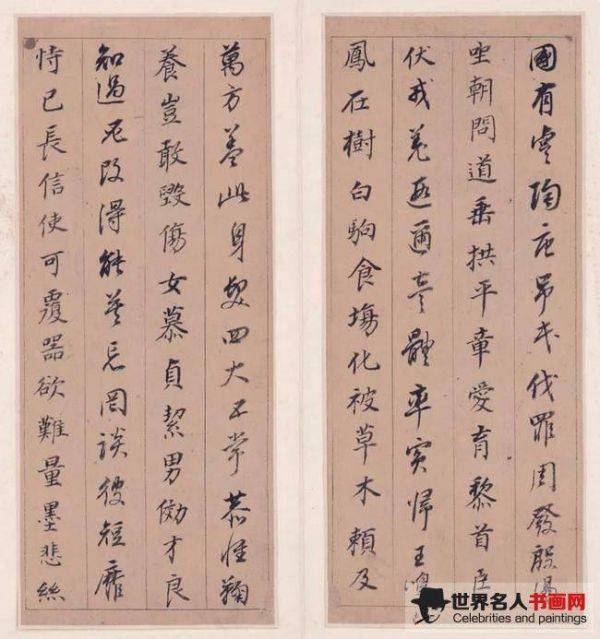 國有虞陶唐弔民伐罪周發殷湯
坐朝問道垂拱平章愛育黎首臣
伏戎羌遐邇壹體率賓歸王鳴
鳳在樹白駒食塲化被草木賴及
萬方蓋此身髮四大五常恭惟鞠
養豈敢毀傷女慕貞絜男効才良
知過必改得能莫忘罔談彼短靡
恃己長信使可覆器欲難量墨悲絲
世界名人书画网
Celebrities and paintings